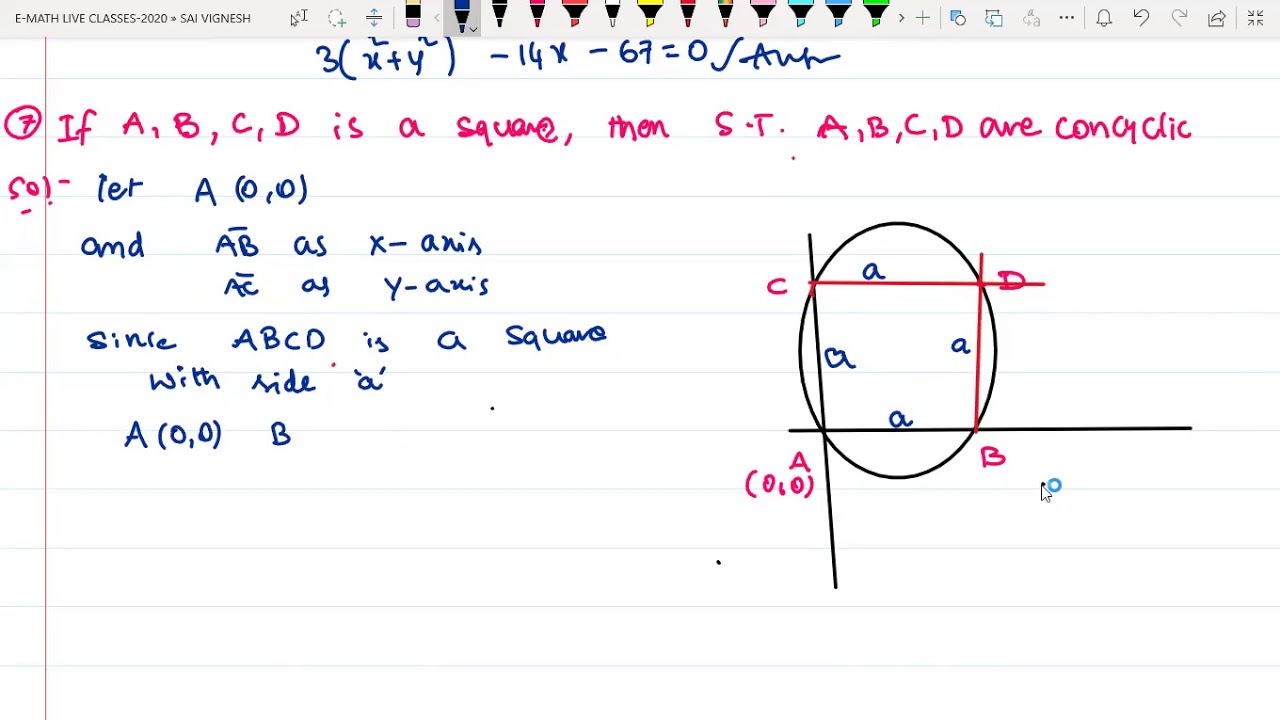 E-MATH LIVE CLASSES-2020 » SAI VIGNESH
3(x²+y²) -14x - 67=0
⑦ If A, B, C, D is a square, then S.T. A,B,C,D are concyclic
Sol:- let A (0,0)
and AB as x-axis
AC as Y-axis
since ABCD is a square
with side 'a'
A(0,0) B
C a D
a a
a
A B
(0,0)